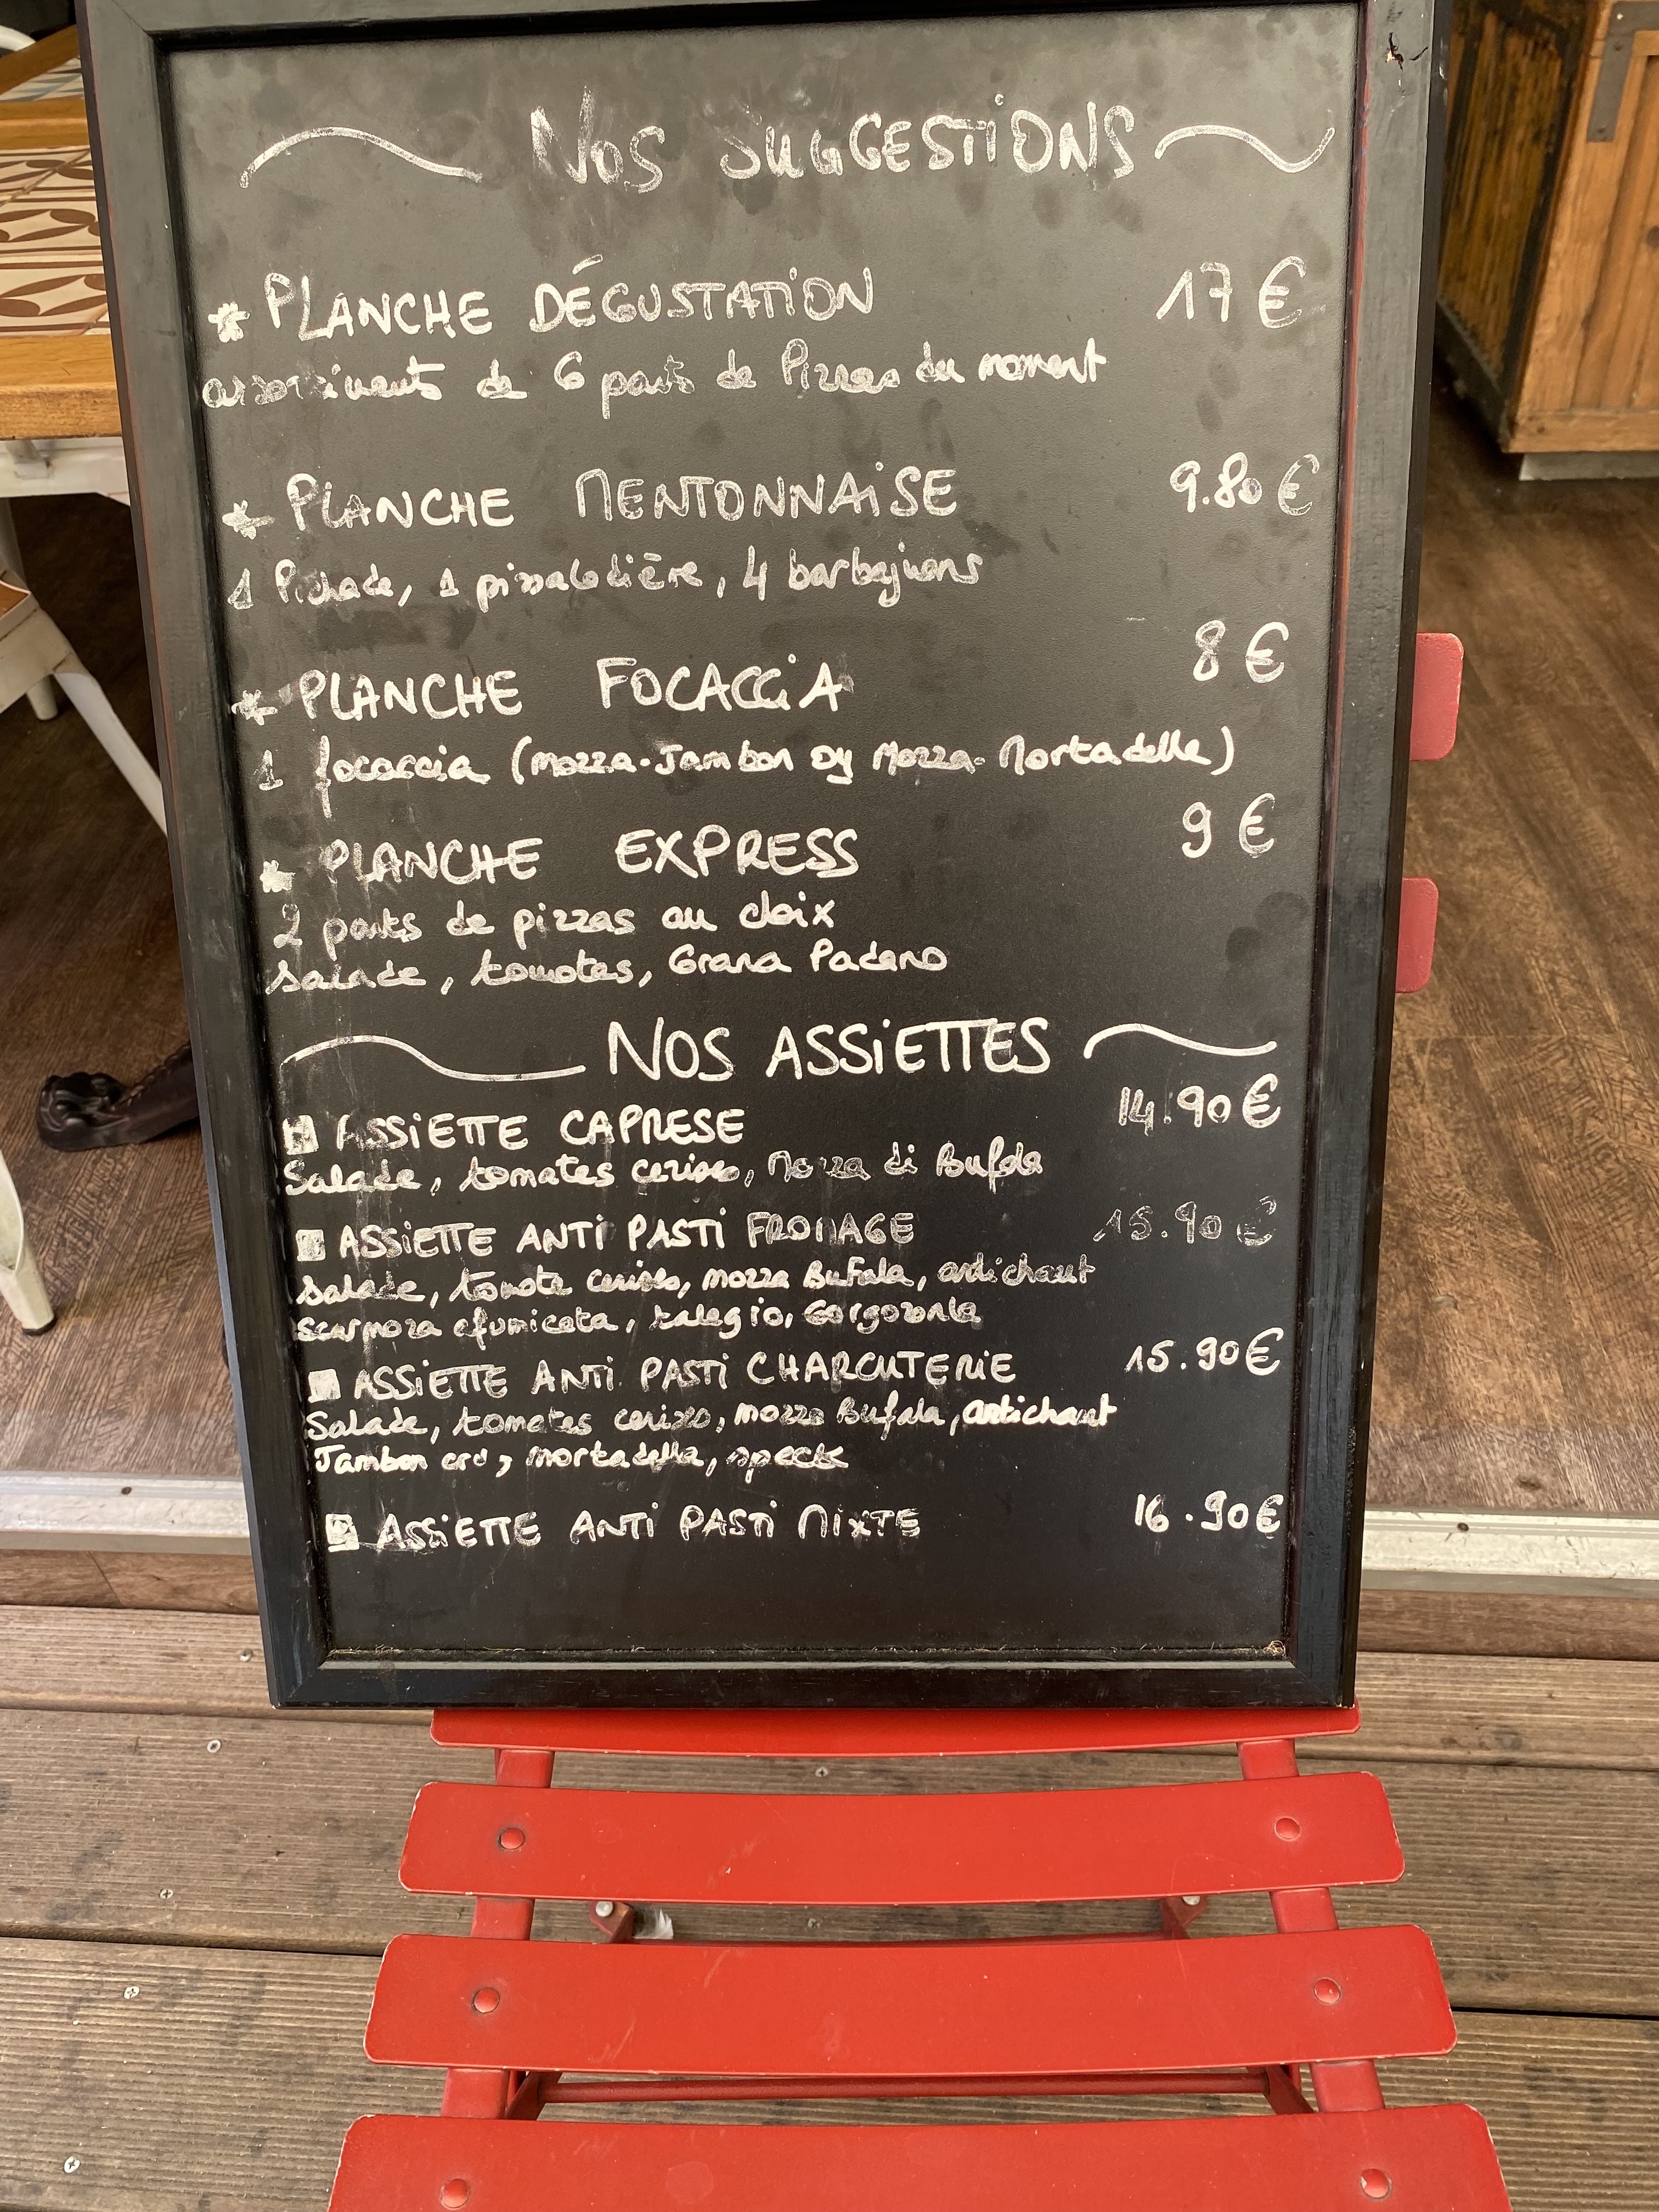 NOS SUGGESTIONS
* PLANCHE DÉGUSTATION 17 €
assortiments de 6 parts de Pizzas du moment
* PLANCHE MENTONNAISE 9.80 €
1 Pichade, 1 pissaladière, 4 barbajuans
* PLANCHE FOCACCIA 8 €
1 focaccia (mozza-Jambon ou Mozza-Mortadella)
* PLANCHE EXPRESS 9 €
2 parts de pizzas au choix
salade, tomates, Grana Padano
NOS ASSIETTES
ASSIETTE CAPRESE 14.90 €
Salade, tomates cerises, Mozza di Bufala
ASSIETTE ANTI PASTI FROMAGE 15.90 €
salade, tomate cerises, mozza Bufala, artichaut
scarmoza afumicata, talegio, Gorgozonla
ASSIETTE ANTI PASTI CHARCUTERIE 15.90 €
Salade, tomates cerises, mozza Bufala, artichaut
Jambon cru, mortadella, speck
ASSIETTE ANTI PASTI MIXTE 16.90 €